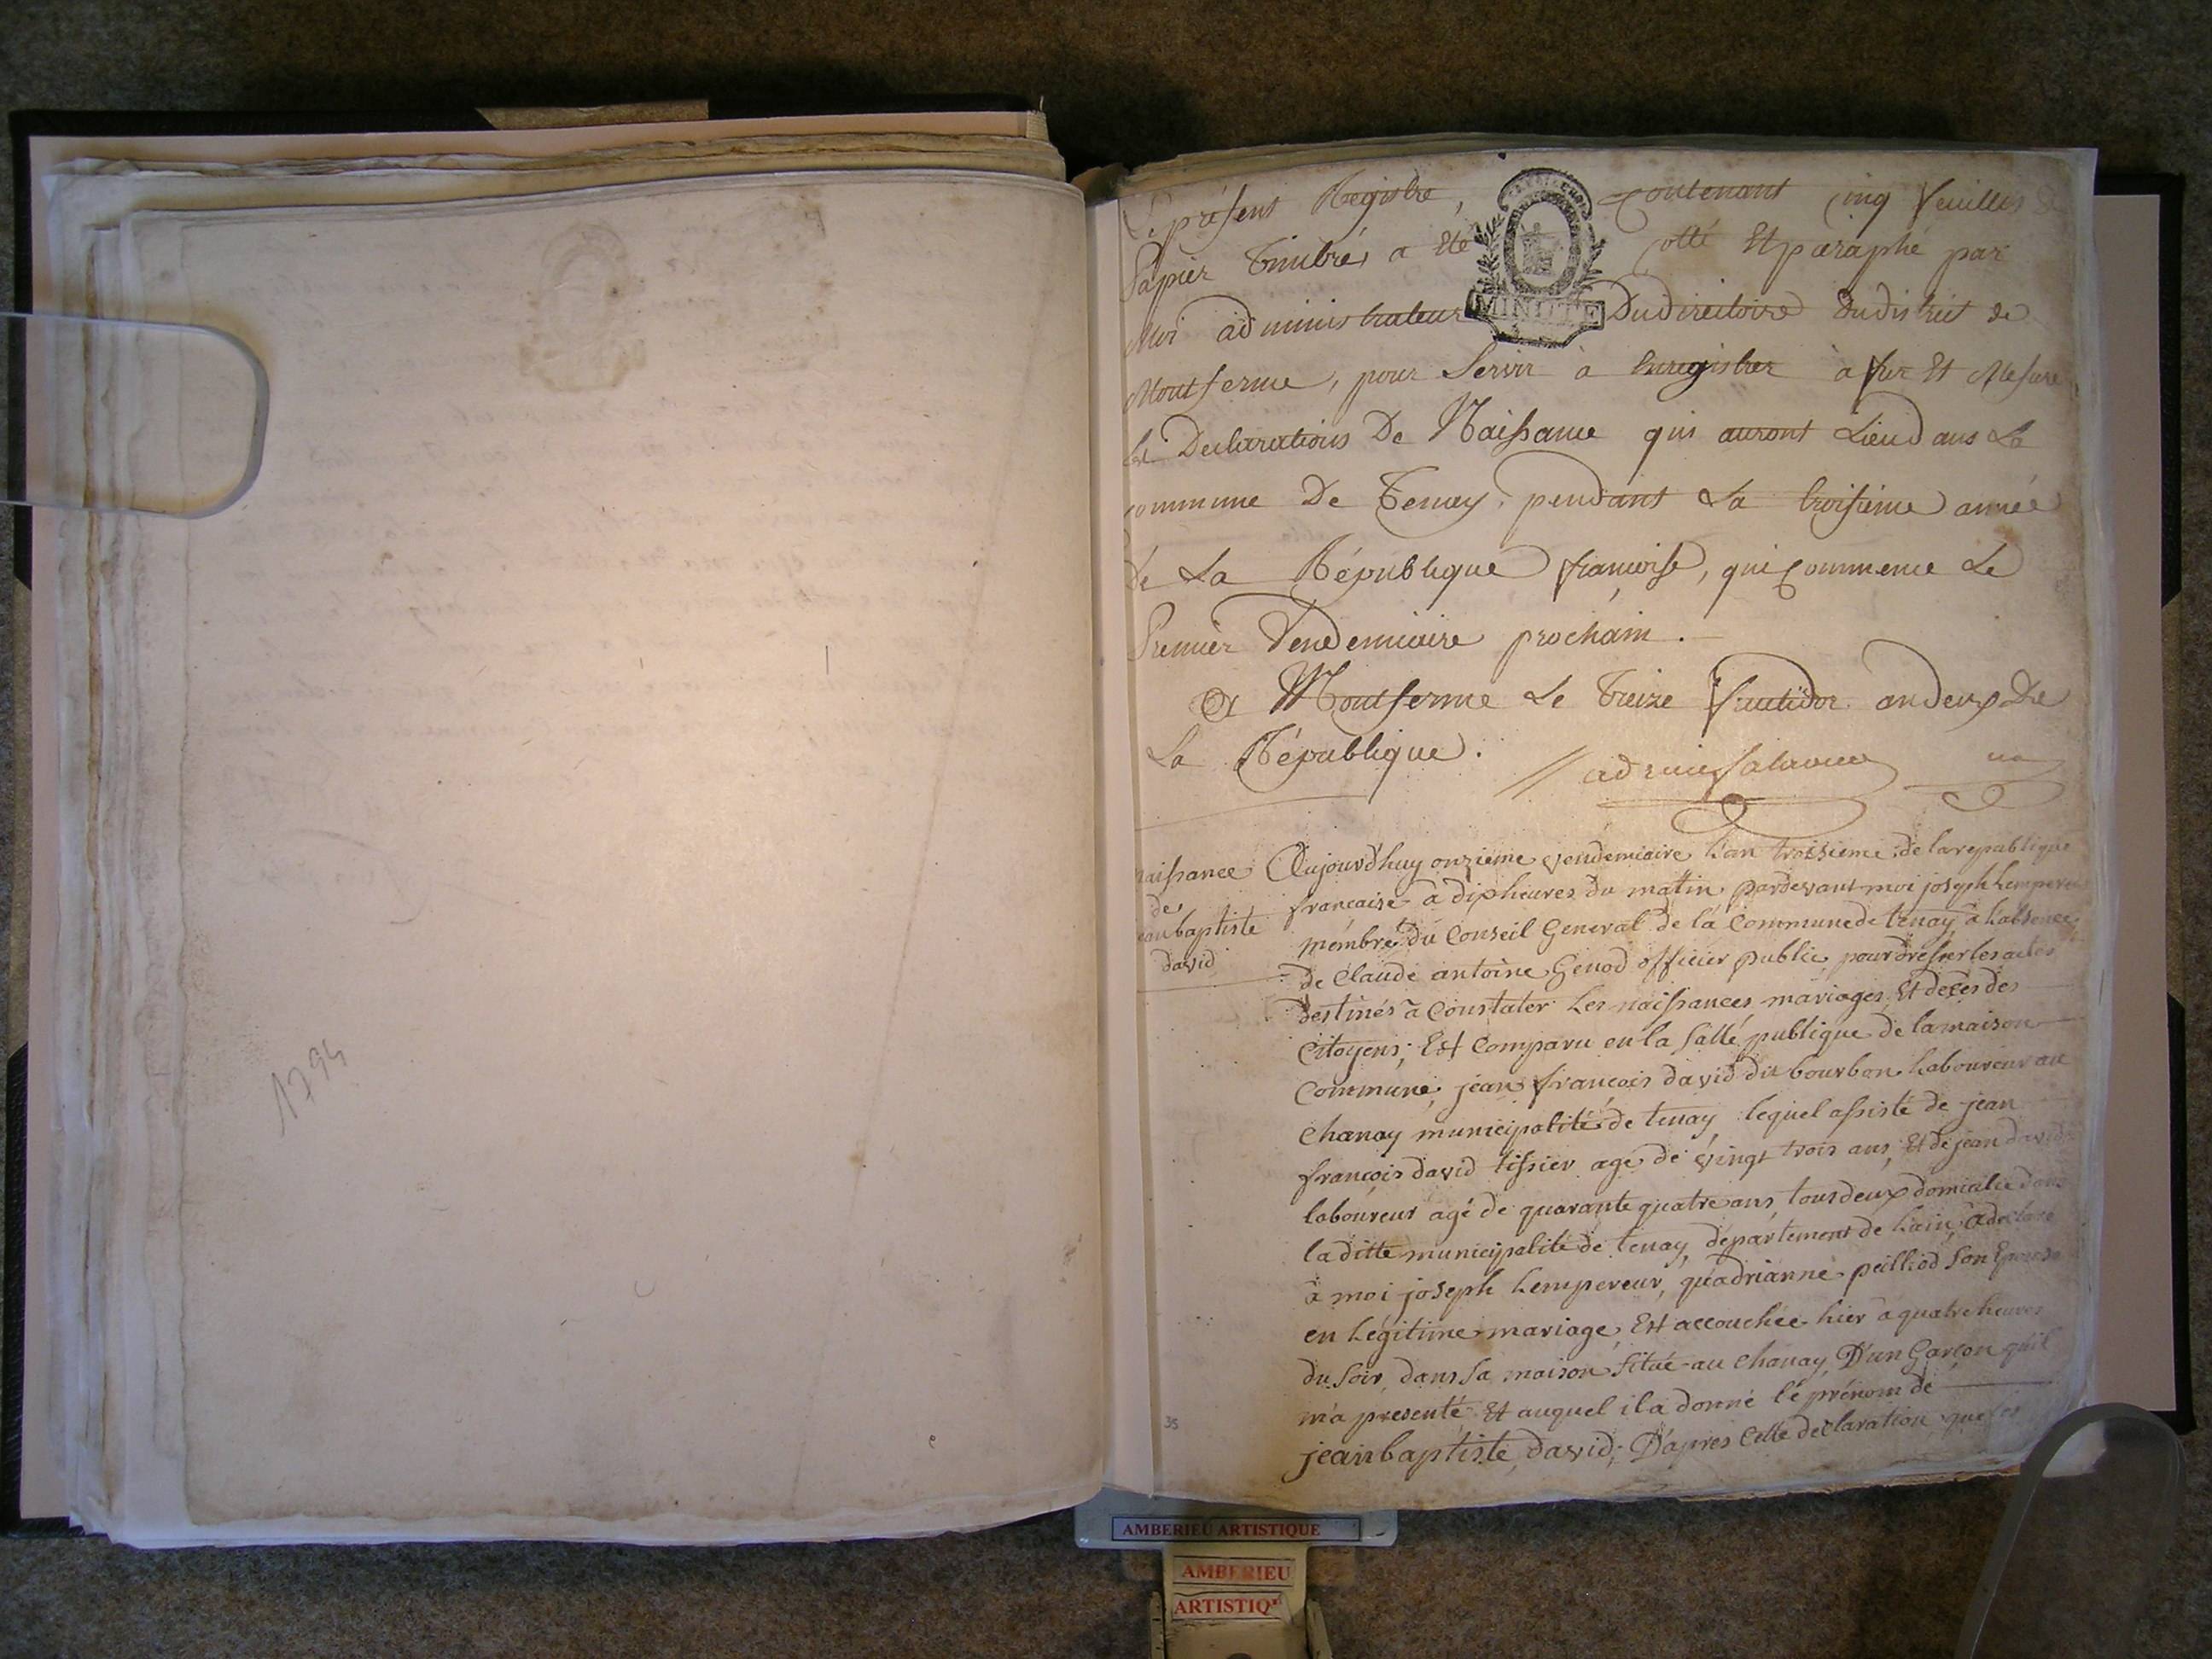 1794
Le présent Registre, contenant cinq feuilles de
Papier Timbré, a été cotté Et paraphé par
MINUTE
Moi administrateur Du directoire du district de
Montferme, pour Servir à Enregistrer à fur Et Mesure
Les Declarations De Naissance qui auront Lieu dans La
commune De Tenay, pendant La troisième année
de La République françoise, qui Commence Le
Premier Vendemiaire prochain.
A Montferme Le Treize fructidor an deux De
La République.
naissance
de
jean baptiste
david
Aujourd'huy onzieme vendemiaire L'an troisieme de la republique
francaise à dix heures du matin pardevant moi joseph Lempereur
membre du Conseil General de la Commune de tenay, à L'absence
de Claude antoine Genod officier public, pour dresser les actes
destinés à Constater Les naissances mariages Et decès des
Citoyens; Est Comparu en la Salle publique de la maison
Commune, jean françois david dit bourbon Laboureur au
Chanay municipalité de tenay lequel assisté de jean
françois david tissier agé de vingt trois ans, Et de jean david
laboureur agé de quarante quatre ans, tous deux domicilié dans
la ditte municipalité de tenay, département de L'ain, a déclaré
à moi joseph Lempereur, qu'adrianne peilliod Son Epouse
en Légitime mariage, Est accouchée hier à quatre heures
du Soir, dans Sa maison Situé au Chanay D'un Garçon qu'il
m'a presenté Et auquel il a donné le prénom de
jean baptiste david; D'apres Cette déclaration que les
35
AMBERIEU ARTISTIQUE
AMBERIEU
ARTISTIQ